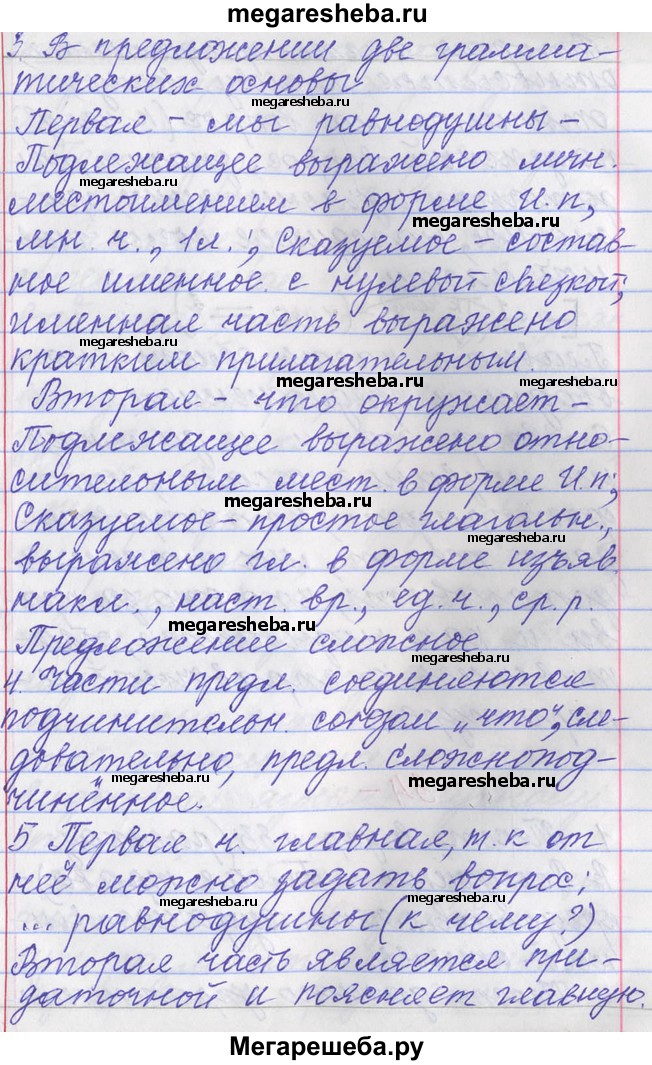 megaresheba.ru
3. В предложении две грамма-
тических основы
megaresheba.ru
Первая - мы равнодушны -
Подлежащее выражено личн.
megaresheba.ru
местоимением в форме И.п,
megaresheba.ru
мн. ч., 1л.; Сказуемое - состав-
ное именное с нулевой связкой;
именная часть выражено
кратким прилагательным.
megaresheba.ru
Вторая - что окружает -
Подлежащее выражено отно-
сительным мест. в форме И.п;
megaresheba.ru
Сказуемое - простое глагольн.,
выражено гл. в форме изъяв.
накл., наст. вр., ед. ч., ср. р.
megaresheba.ru
Предложение сложное
megaresheba.ru
4. Части предл. соединяются
подчинительн. союзом „что", сле-
довательно, предл. сложнопод-
megaresheba.ru
megaresheba.ru
чинённое.
5 Первая ч. главная, т. к от
неё можно задать вопрос:
megaresheba.ru
megaresheba.ru
... равнодушны (к чему?)
Вторая часть является при-
даточной и поясняет главную.
Мегарешеба.ру